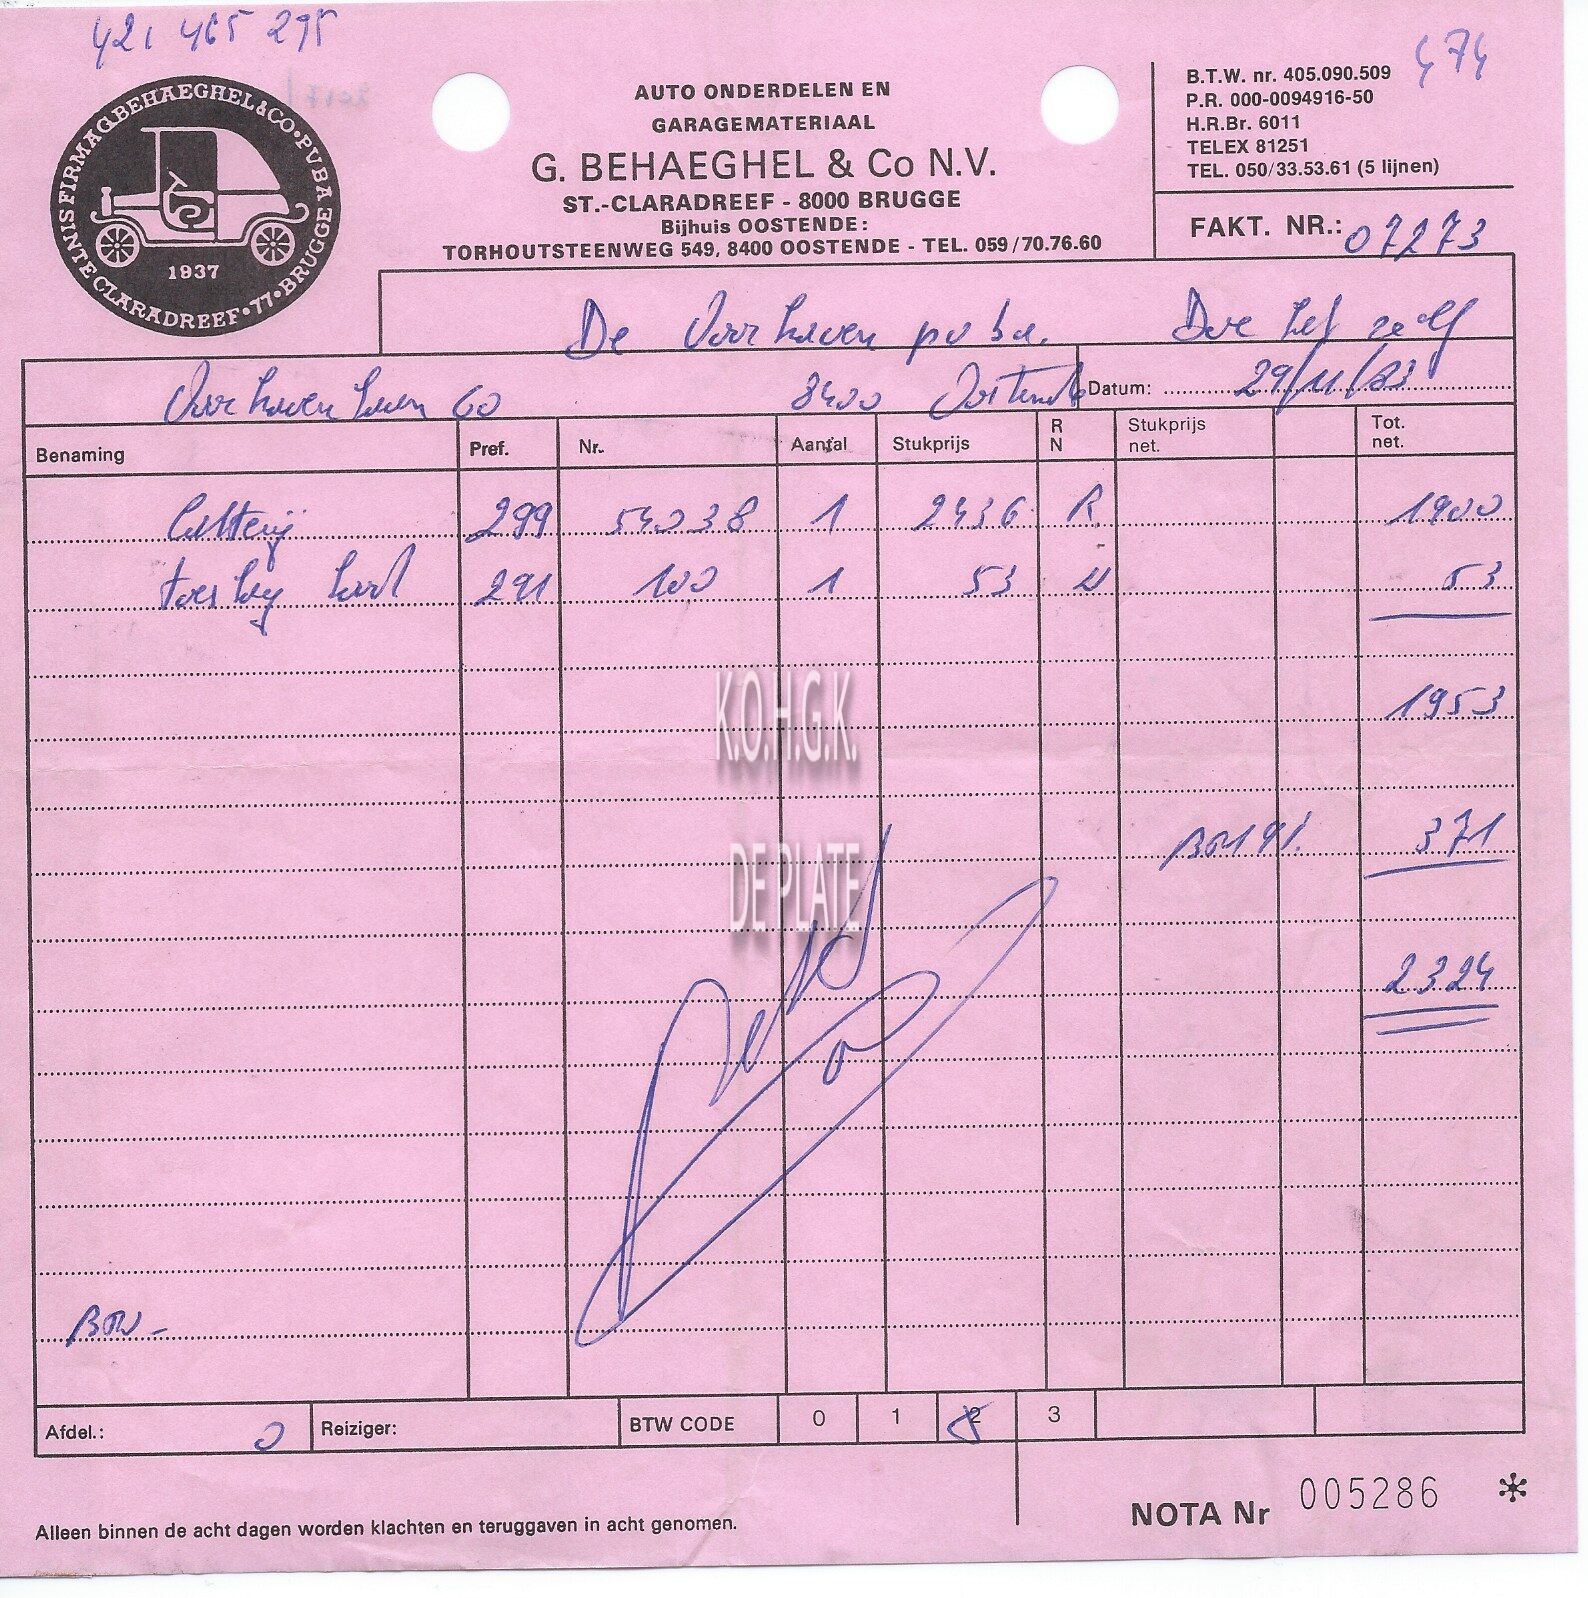 421 465 295
474
FIRMA G. BEHAEGHEL & CO • PVBA BRUGGE • SINTE CLARADREEF • 77 •
1937
AUTO ONDERDELEN EN
GARAGEMATERIAAL
G. BEHAEGHEL & Co N.V.
ST.-CLARADREEF - 8000 BRUGGE
Bijhuis OOSTENDE:
TORHOUTSTEENWEG 549, 8400 OOSTENDE - TEL. 059/70.76.60
B.T.W. nr. 405.090.509
P.R. 000-0094916-50
H.R.Br. 6011
TELEX 81251
TEL. 050/33.53.61 (5 lijnen)
FAKT. NR.: 07273
De Voorhaven pvba. Doe het zelf
Voorhavenlaan 60 8400 Oostende Datum: 29/11/83
Benaming Pref. Nr. Aantal Stukprijs R N Stukprijs net. Tot. net.
batterij 299 54038 1 2436 R 1900
toeslag 291 100 1 53 N 53
1953
BTW 19%. 371
2324
K.O.H.G.K.
DE PLATE
BTW -
Afdel.: 0 Reiziger: BTW CODE 0 1 2 3
NOTA Nr 005286 *
Alleen binnen de acht dagen worden klachten en teruggaven in acht genomen.